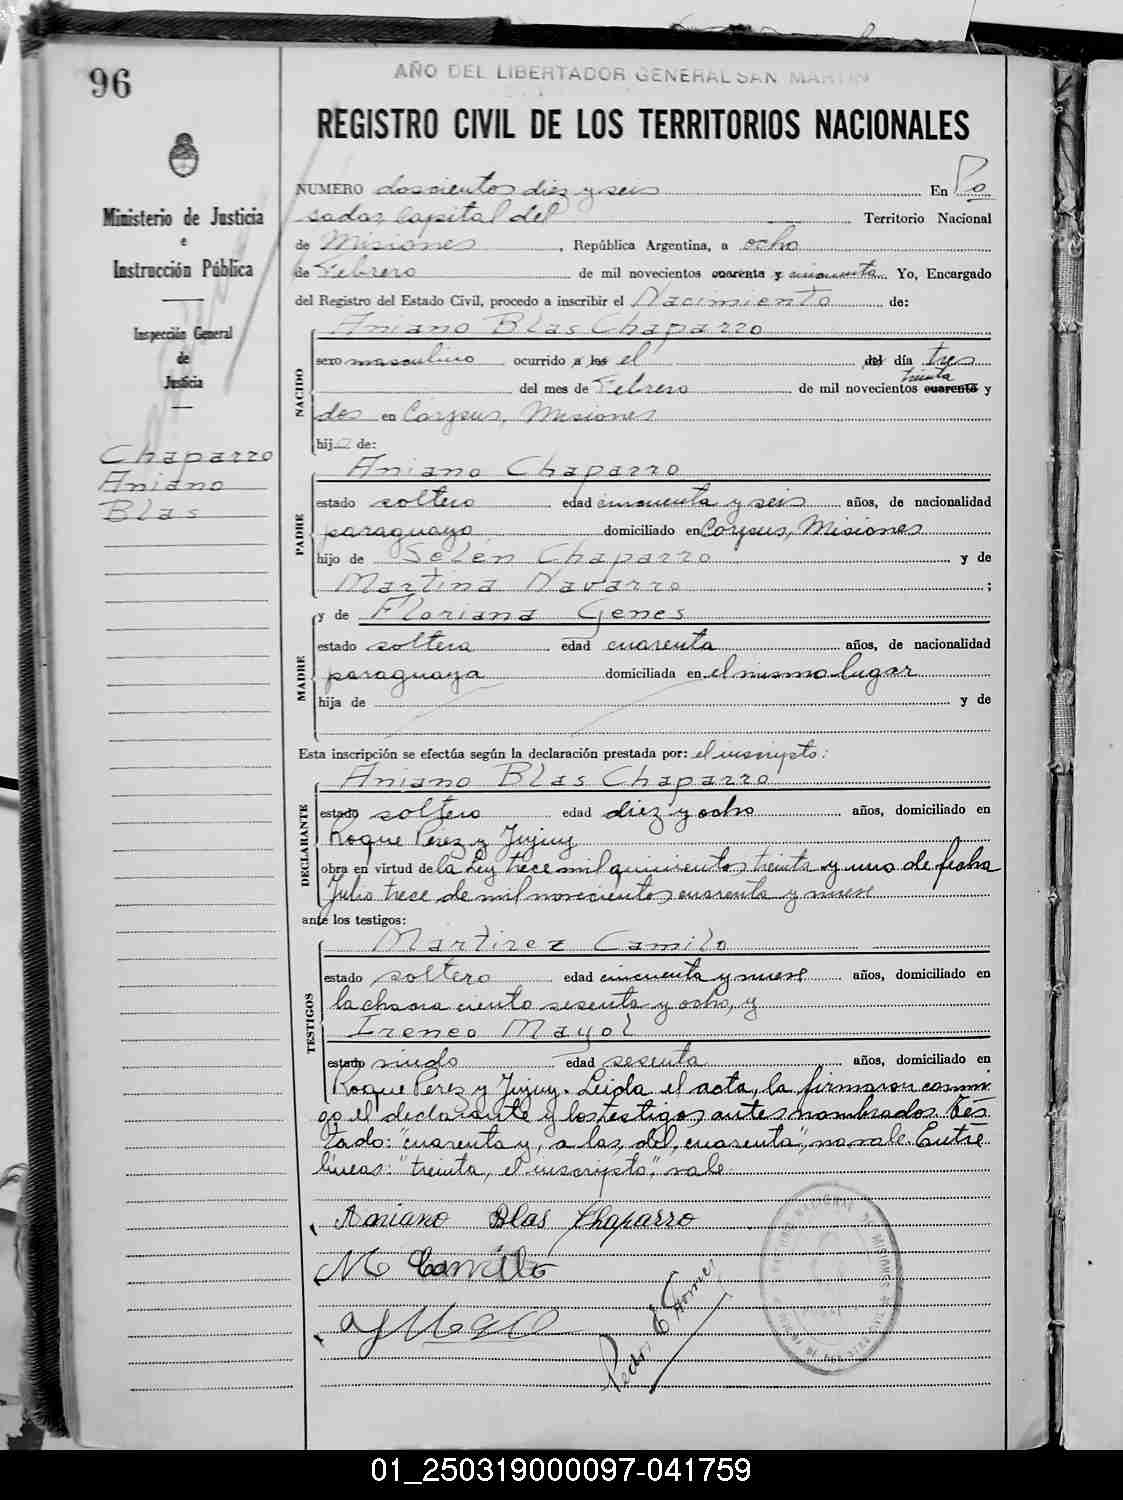 96
AÑO DEL LIBERTADOR GENERAL SAN MARTIN
REGISTRO CIVIL DE LOS TERRITORIOS NACIONALES
Ministerio de Justicia
e
Instrucción Pública
Inspección General
de
Justicia
Chaparro
Aniano
Blas
NUMERO doscientos diez y seis En Po
sadas, Capital del Territorio Nacional
de Misiones, República Argentina, a ocho
de Febrero de mil novecientos cuarenta y cincuenta Yo, Encargado
del Registro del Estado Civil, procedo a inscribir el Nacimiento de:
NACIDO
Aniano Blas Chaparro
sexo masculino ocurrido a las el del día tres
treinta
del mes de Febrero de mil novecientos cuarenta y
dos en Corpus, Misiones
hijo de:
PADRE
Aniano Chaparro
estado soltero edad cincuenta y seis años, de nacionalidad
paraguayo domiciliado en Corpus, Misiones
hijo de Selén Chaparro y de
Martina Navarro;
MADRE
y de Floriana Genes
estado soltera edad cuarenta años, de nacionalidad
paraguaya domiciliada en el mismo lugar
hija de y de
Esta inscripción se efectúa según la declaración prestada por: el inscripto:
DECLARANTE
Aniano Blas Chaparro
estado soltero edad diez y ocho años, domiciliado en
Roque Perez y Jujuy
obra en virtud de la Ley trece mil quinientos treinta y uno de fecha
Julio trece de mil novecientos cuarenta y nueve
ante los testigos:
TESTIGOS
Martirez Camilo
estado soltero edad cincuenta y nueve años, domiciliado en
la chacra ciento sesenta y ocho, y
Ireneo Mayol
estado viudo edad sesenta años, domiciliado en
Roque Perez y Jujuy. Leida el acta, la firmaron conmi
go el declarante y los testigos antes nombrados. Tes
tado: "cuarenta y, a las, del, cuarenta", no vale. Entre
líneas: "treinta, el inscripto", vale
Aniano Blas Chaparro
M Camilo
Pedro E Gomez
01_250319000097-041759